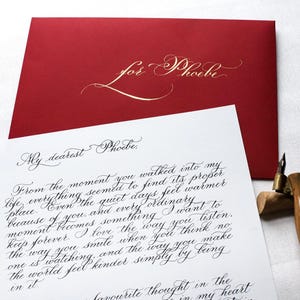 for Phoebe
My dearest Phoebe,
From the moment you walked into my
life, everything seemed to find its proper
place. Even the quiet days feel warmer
because of you and every ordinary
moment becomes something I want to
keep forever. I love the way you listen,
the way you smile when you think no
one is watching, and the way you make
the world feel kinder simply by being
in it.
favourite thought in the
in my heart